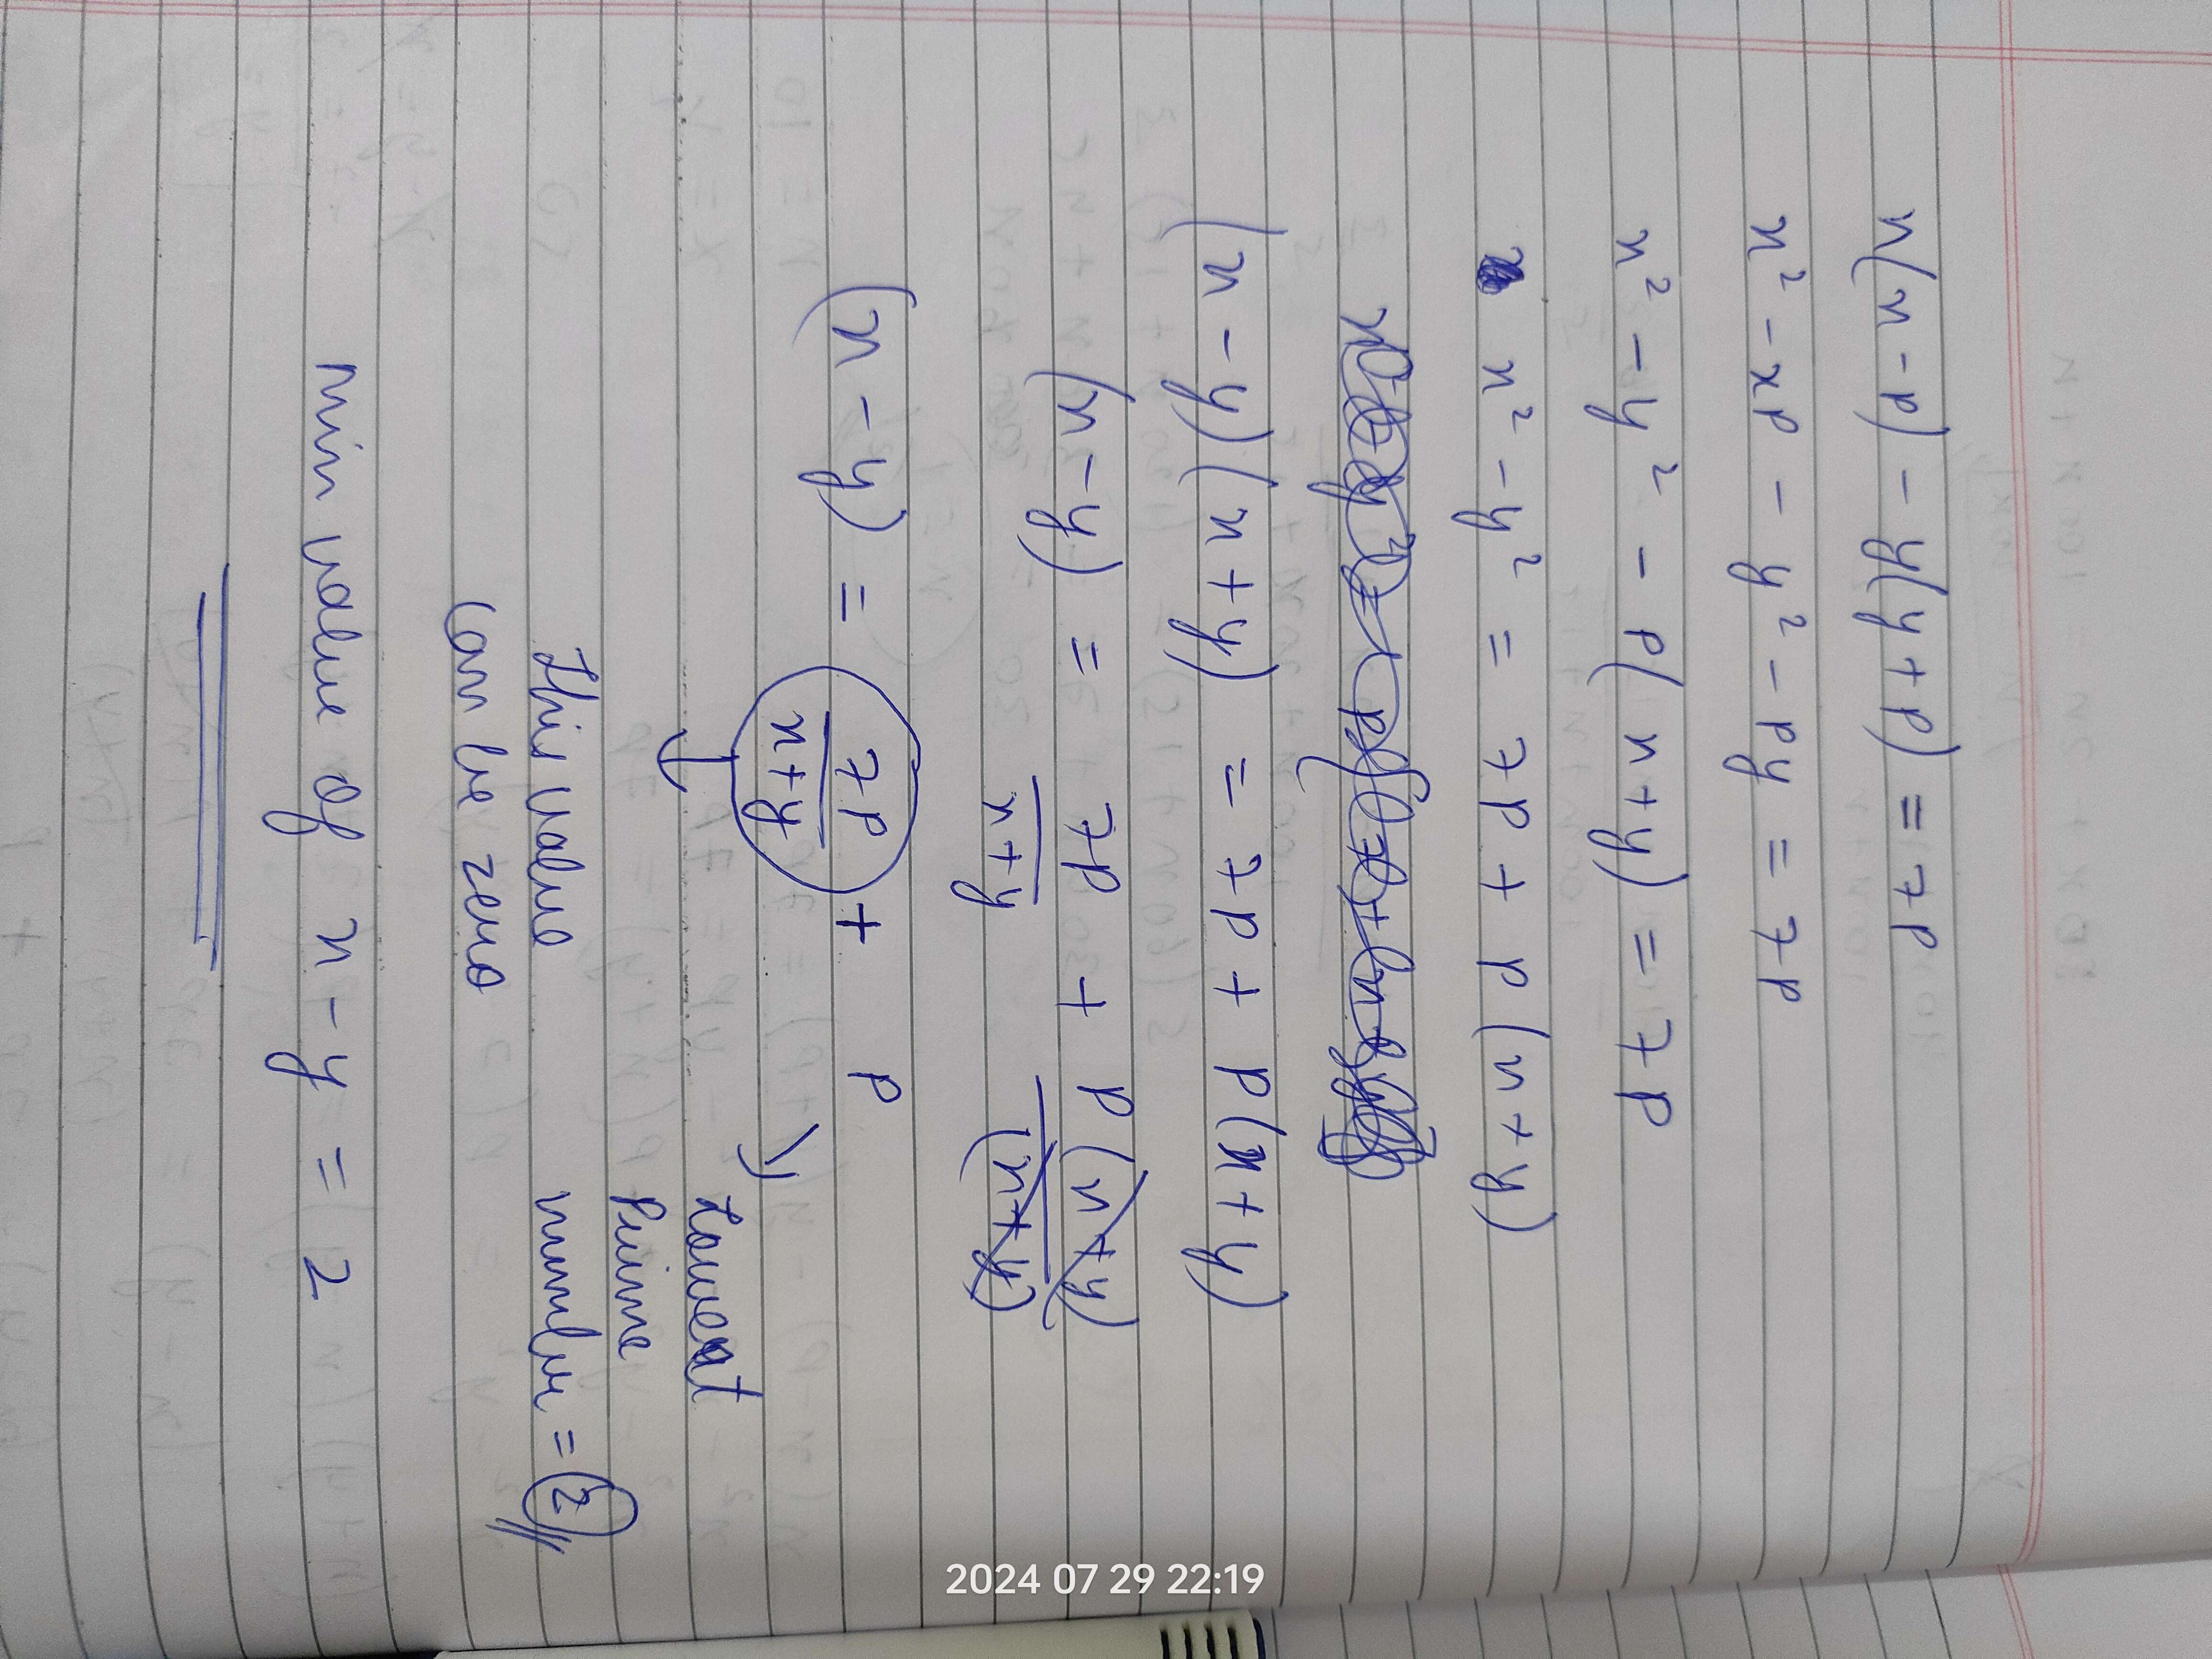 x(x-p) - y(y+p) = 7p
x² - xp - y² - py = 7p
x² - y² - p(x+y) = 7p
x² - y² = 7p + p(x+y)
(x-y)(x+y) = 7p + p(x+y)
(x-y) = 7p/(x+y) + p(x+y)/(x+y)
(x-y) = 7p/(x+y) + p
↓ This value can be zero
↘ Lowest Prime number = 2
min value of x - y = 2
2024 07 29 22:19